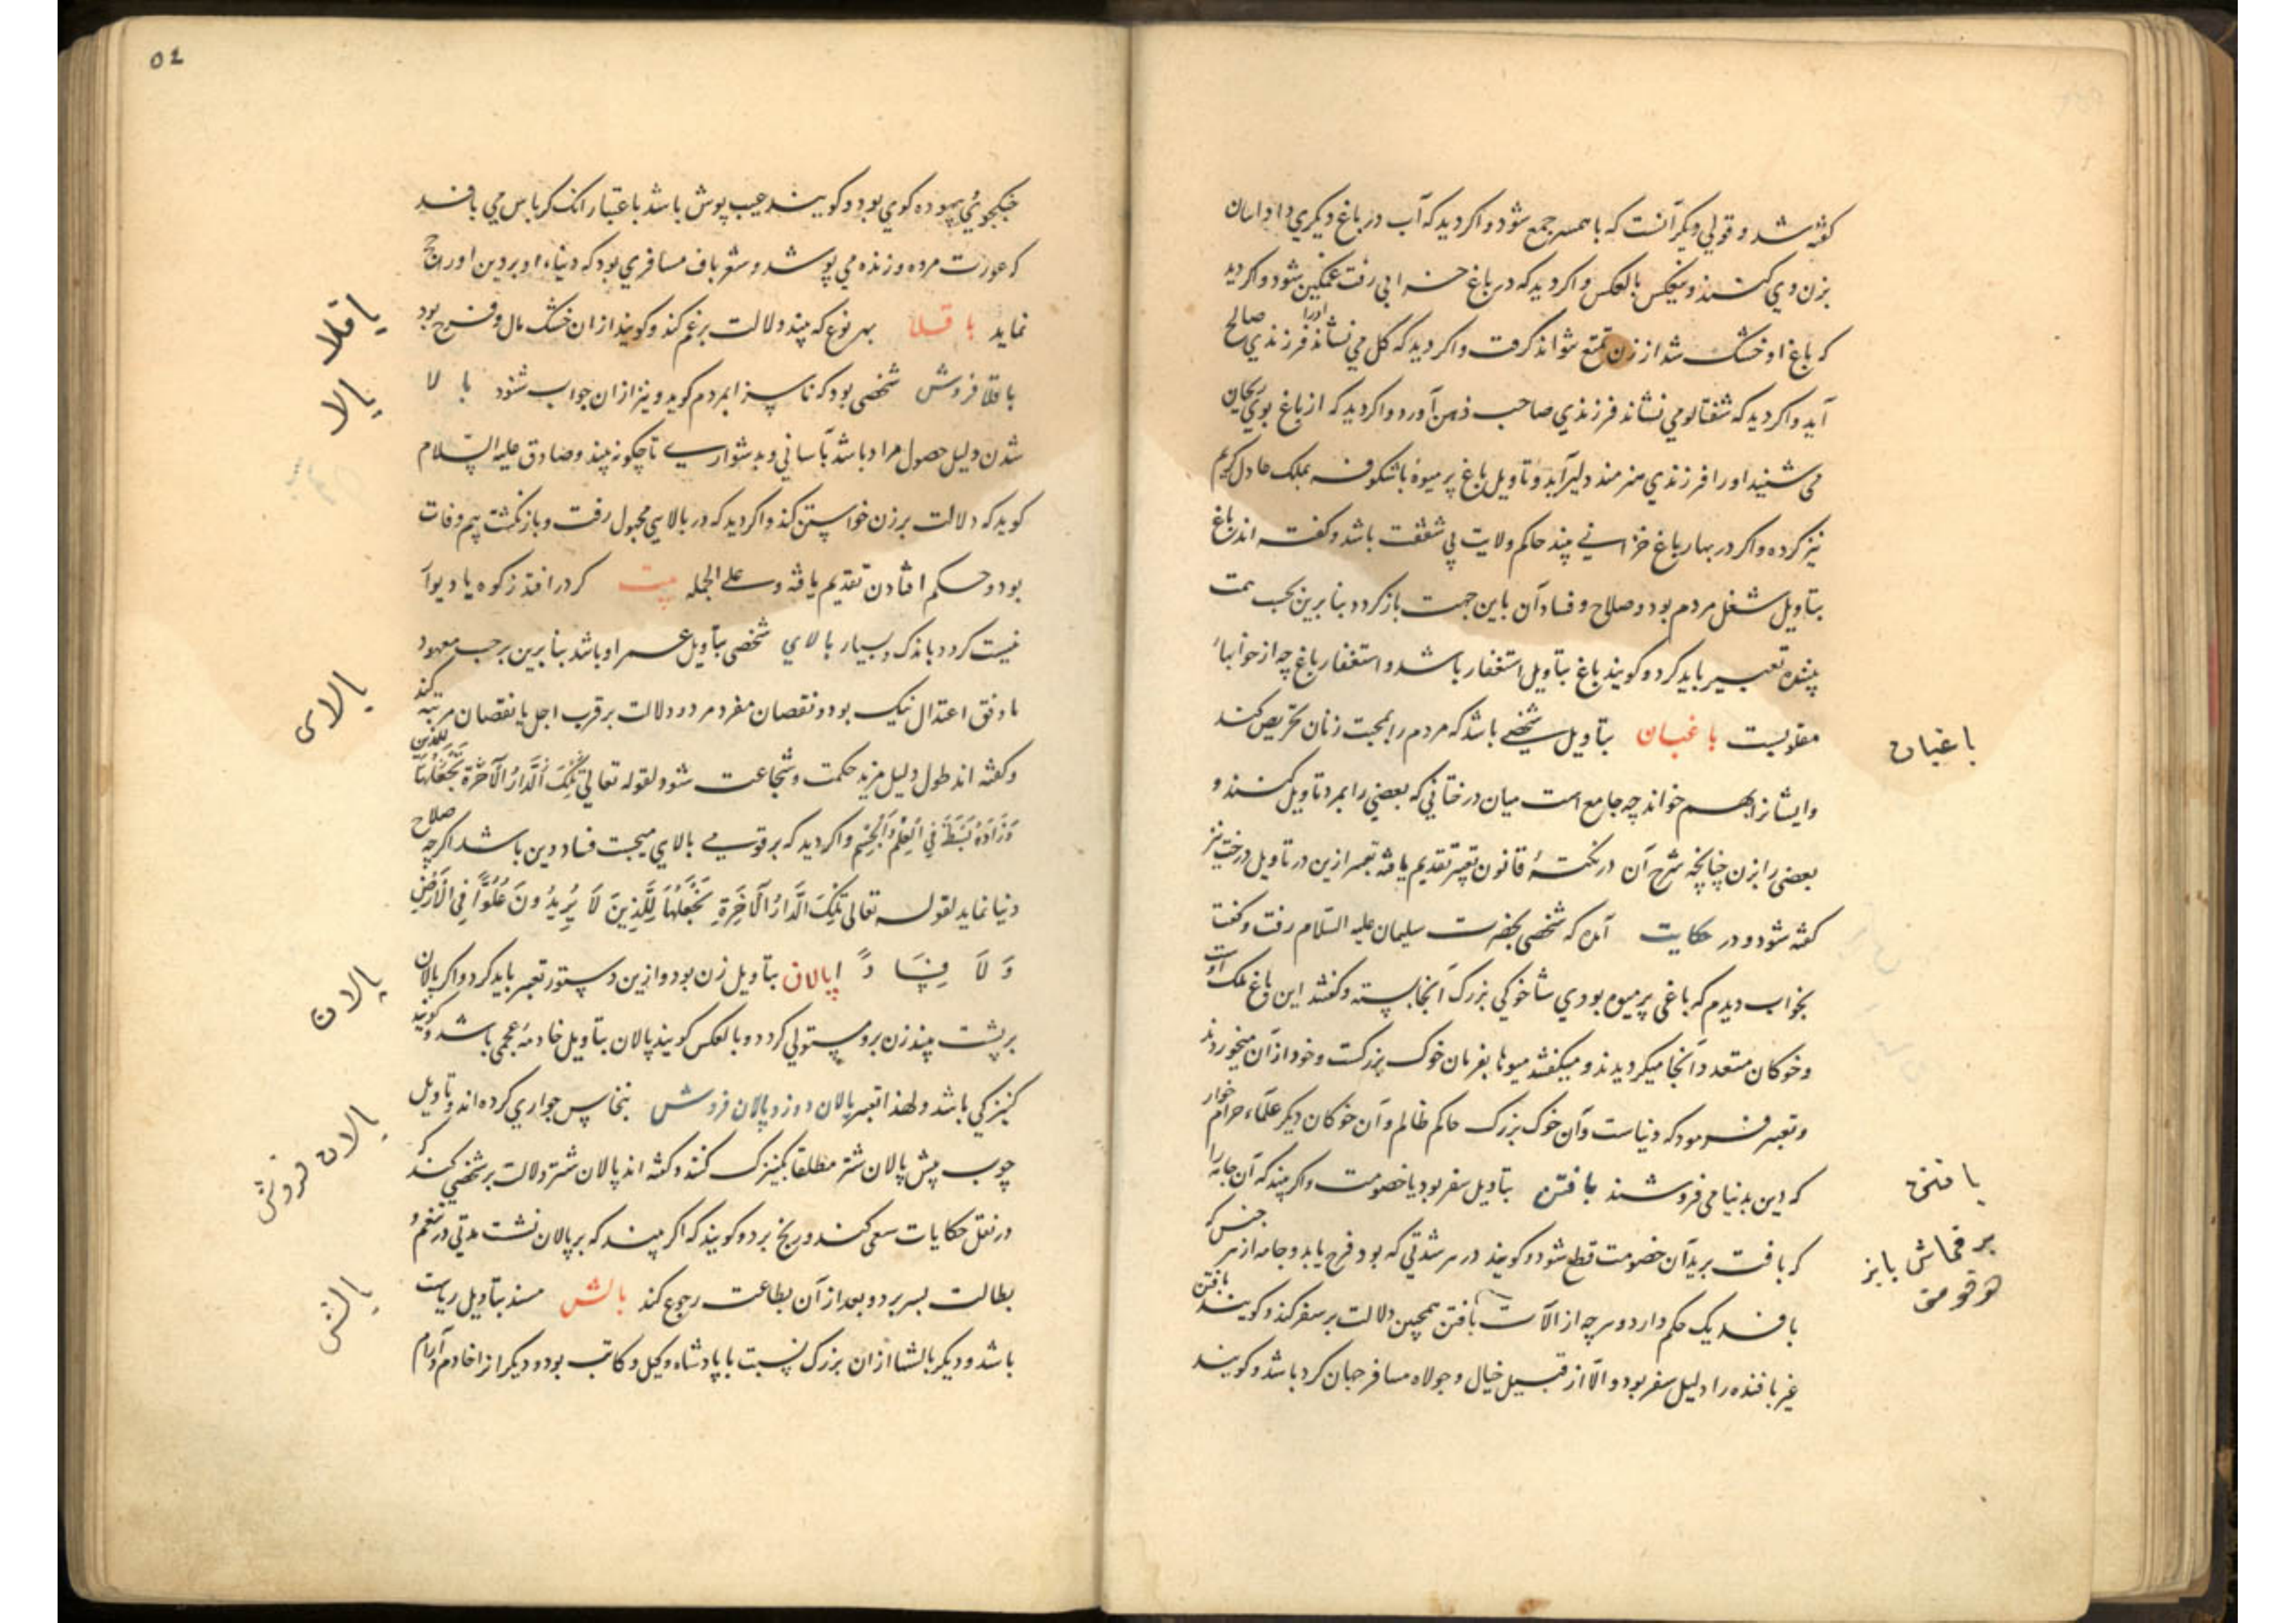 گفته شد و قولی دیگر آنست که با همسر جمع شود و اگر دید که آب در باغ دیگری داد
بزن وی کنند و بعکس بالعکس و اگر دید که در باغ خزانی رفت غمگین شود و اگر دید
که باغ او خشک شد از زن تمتع نتواند گرفت و اگر دید که گل می نشاند او را فرزندی صالح
آید و اگر دید که شفتالو می نشاند فرزندی صاحب ذهن آورد و اگر دید که از باغ بوی ریحان
می شنید او را فرزندی هنرمند دلیر آید و تاویل باغ پر میوه با شکوفه بملک عادل کریم
نیز کرده و اگر در بهار باغ خزانی بیند حاکم ولایت بی شفقت باشد و گفته اند باغ
بتاویل شغل مردم بود و صلاح و فساد آن باین جهت بازگردد بنابرین بحسب همت
بیننده تعبیر باید کرد و گویند باغ بتاویل استغفار باشد و استغفار باغ چه از خوابهاء
مقلوبست باغبان بتاویل شخصی باشد که مردم را بمحبت زنان تحریص کند
باغبان
وایشانرا بهم خواند چه جامع است میان درختانی که بعضی را بمرد تاویل کنند و
بعضی را بزن چنانچه شرح آن در نکتهٔ قانون تعبیر تقدیم یافته تعبیر ازین در تاویل درخت نیز
گفته شود و در حکایت آمده که شخصی بحضرت سلیمان علیه السلام رفت و گفت
بخواب دیدم که باغی پر میوه بودی شاخوکی بزرگ آنجا نشسته و گفتند این باغ ملک اوست
و خوکان متعدد آنجا میگردیدند و میگفتند میوها بفرمان خوک بزرگست و خود از آن میخوردند
و تعبیر فرمود که دنیاست و آن خوک بزرگ حاکم ظالم و آن خوکان دیگر علماء حرام خوار
که دین بدنیا می فروشند بافتن بتاویل سفر بود یا خصومت و اگر بیند که آن جامه را
بافتن
که بافت برید آن خصومت قطع شود و گویند در هر شدتی که بود فرح یابد و جامه از هر جنس که
بر قماش بابز
بافند یک حکم دارد و هرچه از آلات بافتن همچنین دلالت بر سفر کند و گویند بافتن
غیر بافنده را دلیل سفر بود و الا از قبیل خیال و جولاه مسافر جهان گرد باشد و گویند
٥٤
جنگجوئی بیهوده گوی بود و گویند عیب پوش باشد باعتبار آنک کرباس می بافد
که عورت مرده و زنده می پوشد و شعرباف مسافری بود که دنیاء او بر دین او رجح
نماید باقلا بهر نوع که بیند دلالت بر غم کند و گویند از ان خشک مال و فرح بود
باقلا
باقلا فروش شخصی بود که ناسزا بمردم گوید و نیز از ان جواب شنود بالا
بالا
شدن دلیل حصول مراد باشد بآسانی و بدشواری تا چگونه بیند و صادق علیه السّلام
گوید که دلالت بر زن خواستن کند و اگر دید که در بالایی مجهول رفت و بازنگشت بیم وفات
بود و حکم افتادن تقدیم یافته و علی الجمله بیت که در افتد ز کوه یا دیوار
نیست گردد باندک و بسیار بالای شخصی بتاویل عمر او باشد بنابرین بر حسب معهود
بالای
ما وفق اعتدال نیک بود و نقصان مفرد مرد دلالت بر قرب اجل یا نقصان مرتبه کند
و گفته اند طول دلیل مزید حکمت و شجاعت شود لقوله تعالی تِلْكَ الدَّارُ الْآخِرَةُ نَجْعَلُهَا لِلَّذِينَ
وَزَادَهُ بَسْطَةً فِي الْعِلْمِ وَالْجِسْمِ و اگر دید که بر قومی بالای میجست فساد دین باشد اگرچه صلاح
دنیا نماید لقوله تعالی تِلْكَ الدَّارُ الْآخِرَةِ نَجْعَلُهَا لِلَّذِينَ لَا يُرِيدُونَ عُلُوًّا فِي الْأَرْضِ
وَلَا فِسَادًا پالان بتاویل زن بود و ازین دستور تعبیر باید کرد و اگر پالان
پالان
بر پشت بیند زن برو مستولی گردد و بالعکس گویند پالان بتاویل خادمهٔ عجمی باشد و گویند
کنیزکی باشد ولهذا تعبیر پالان دوز و پالان فروش بنخاس جواری کرده اند و تاویل
پالان فروش
چوب پیش پالان شتر مطلقا بکنیزک کنند و گفته اند پالان شتر دلالت بر شخصی کند که
در نقل حکایات سعی کند و رنج برد و گویند که اگر بیند که بر پالان نشست مدتی در تنعم و
بطالت بسر برد و بعد از آن بطاعت رجوع کند بالش مسند بتاویل ریاست
بالش
باشد و دیگر بالشها از ان بزرگ نسبت با پادشاه وکیل و کاتب بود و دیگر از خادم و آرام